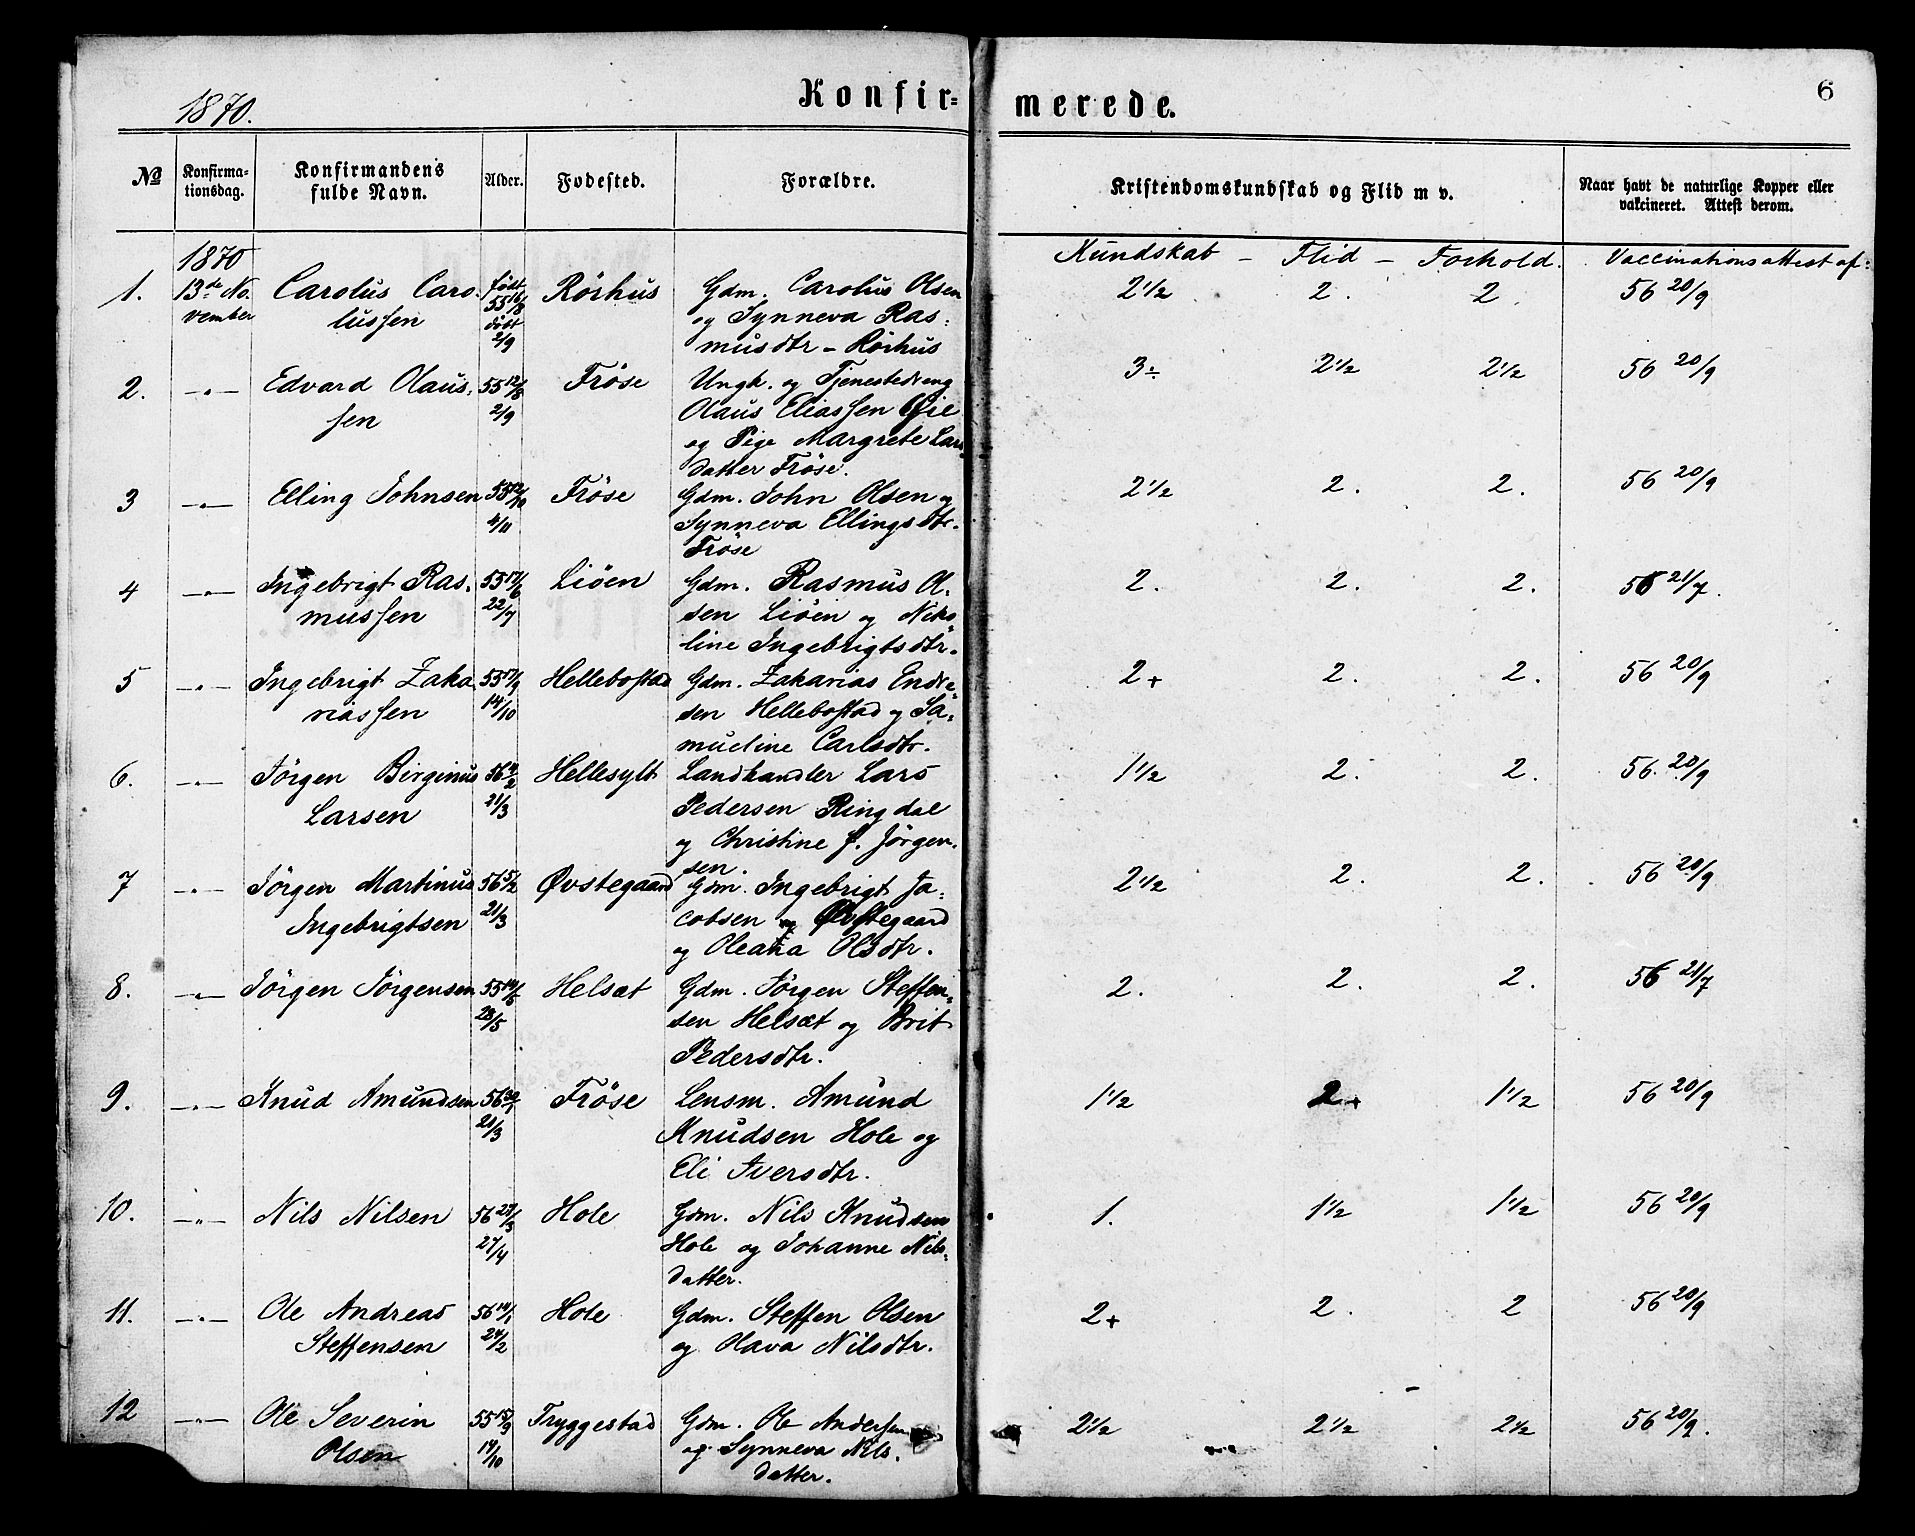 1870.
Konfir=
merede.
6
No
Konfirma-
tionsdag.
Konfirmandens
fulde Navn.
Alder.
Fødested.
Forældre.
Kristendomskundskab og Flid m v.
Naar havt de naturlige Kopper eller
vakcineret. Attest derom.
Kundskab - Flid - Forhold. Vaccinationsattest af:
1. 1870
13de No-
vember
Carolus Caro-
lussen
født
55 16/8
døbt
2/9
Rörhus
Gdm. Carolus Olsen
og Synneva Ras-
musdtr - Rörhus
2 1/2 2. 2 56 20/9
2. -"- Edvard Olaus-
sen
55 12/8
2/9
Fröse
Ungk. og Tjenestedreng
Olaus Eliassen Øie
og Pige Margrete Lars
datter Fröse.
3÷ 2 1/2 2 1/2 56 20/9
3 -"- Elling Johnsen
55 12/10
4/11
Fröse
Gdm. John Olsen og
Synneva Ellingsdtr.
Fröse
2 1/2 2. 2. 56 20/9
4 -"- Ingebrigt Ras-
mussen
55 17/6
22/7
Liöen
Gdm. Rasmus Ol-
sen Liöen og Niko-
line Ingebrigtsdtr.
2. 2. 2. 56 21/7.
5 -"- Ingebrigt Zaka
riassen
55 17/9
14/10
Hellebostad
Gdm. Zakarias Endre-
sen Hellebostad og Sa-
mueline Carlsdtr.
2+ 2. 2. 56 20/9
6. -"- Jörgen Birginus
Larsen
56
21/3
Hellesylt
Landhandler Lars
Pedersen Ringdal
og Christine f. Jörgen-
sen.
1 1/2 2. 2. 56. 20/9
7 -"- Jörgen Martinus
Ingebrigtsen
56 5/2
21/3
Øvstegaard
Gdm. Ingebrigt Ja-
cobsen Øvstegaard
og Oleana Olsdtr.
2 1/2 2. 2. 56 20/9
8. -"- Jörgen Jörgensen
55
28/5
Helsæt
Gdm. Jörgen Steffen-
sen Helsæt og Brit
Pedersdtr.
2. 2. 2. 56 21/7
9. -"- Knud Amundsen
56
21/3
Fröse
Lensm. Amund
Knudsen Hole og
Eli Iversdtr.
1 1/2 2+ 1 1/2 56 20/9
10. -"- Nils Nilsen
56 29/3
27/4
Hole
Gdm. Nils Knudsen
Hole og Johanne Nils-
datter.
1. 1 1/2 1 1/2 56 20/9
11. -"- Ole Andreas
Steffensen
56 14/1
24/2
Hole
Gdm. Steffen Olsen
og Olava Nilsdtr.
2+ 2. 2 56 20/9
12 -"- Ole Severin
Olsen
55 15/9
14/10
Tryggestad
Gdm. Ole Andersen
og Synneva Nils-
datter.
2 1/2 2 1/2 2 1/2 56 20/9.